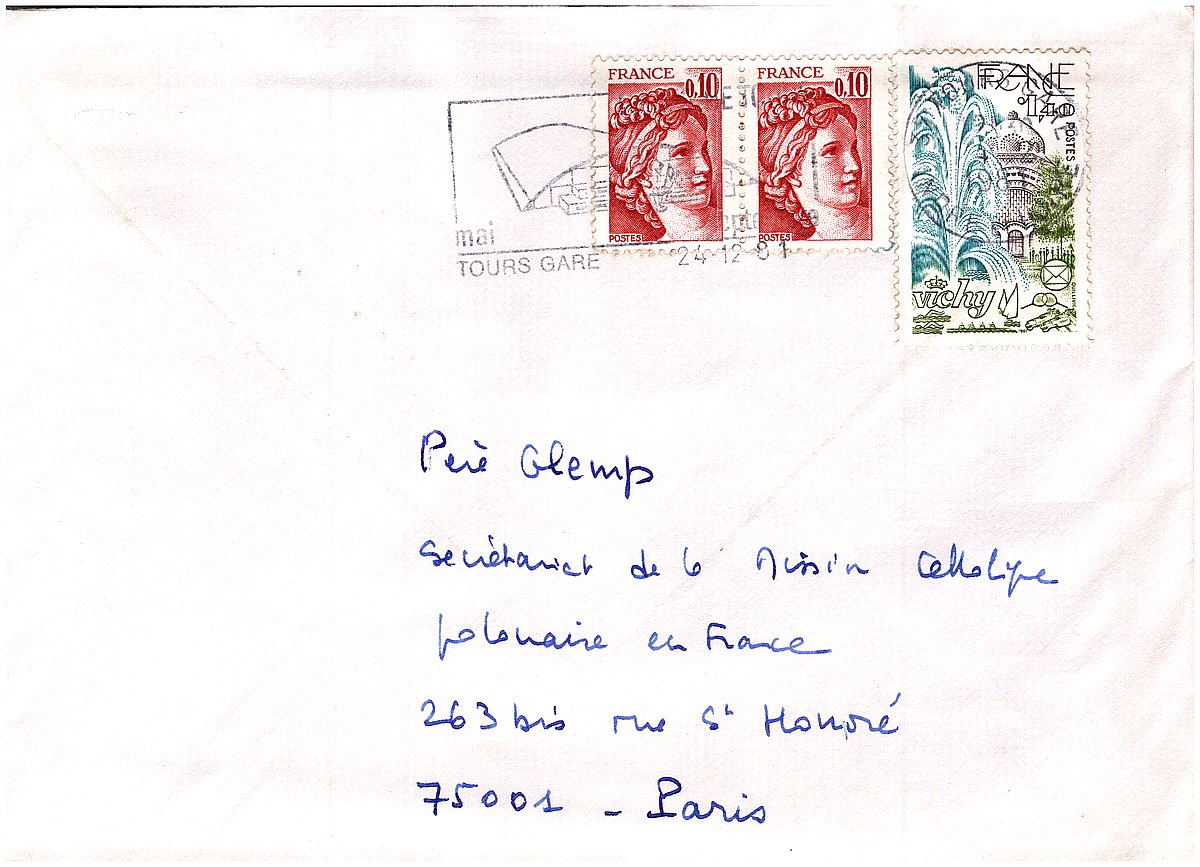 FRANCE 0,10
POSTES
FRANCE 0,10
POSTES
FRANCE
1,40
POSTES
vichy
mai
TOURS GARE
24-12 81
Père Glemp
Secrétariat de la Mission Catholique
polonaise en France
263 bis rue St Honoré
75001 - Paris